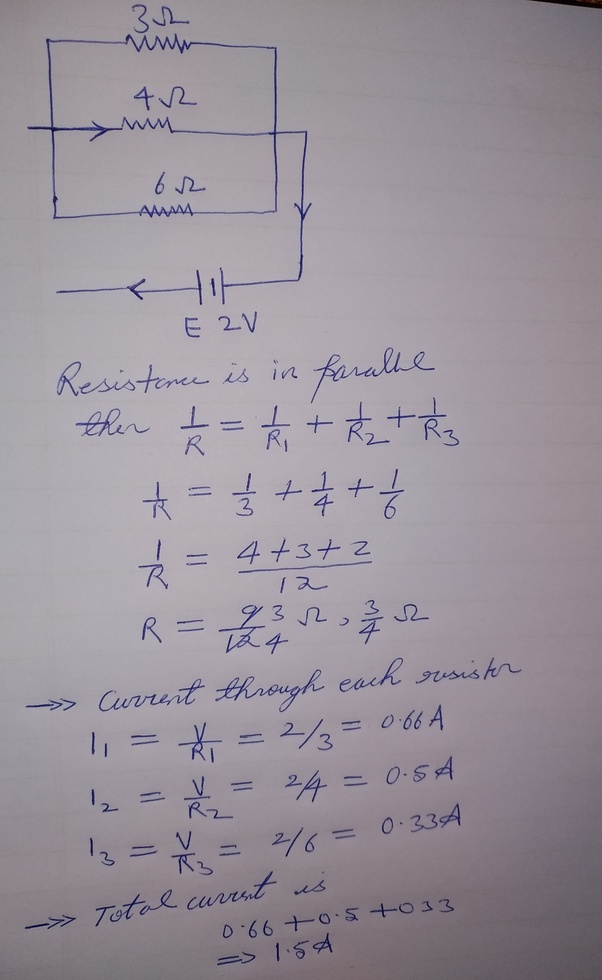 3Ω
4Ω
6Ω
E 2V
Resistance is in parallel
then 1/R = 1/R₁ + 1/R₂ + 1/R₃
1/R = 1/3 + 1/4 + 1/6
1/R = 4+3+2/12
R = 9/12 3/4 Ω, 3/4 Ω
→» Current through each resistor
I₁ = V/R₁ = 2/3 = 0.66A
I₂ = V/R₂ = 2/4 = 0.5A
I₃ = V/R₃ = 2/6 = 0.33A
→» Total current is
0.66 + 0.5 + 033
=> 1.5A